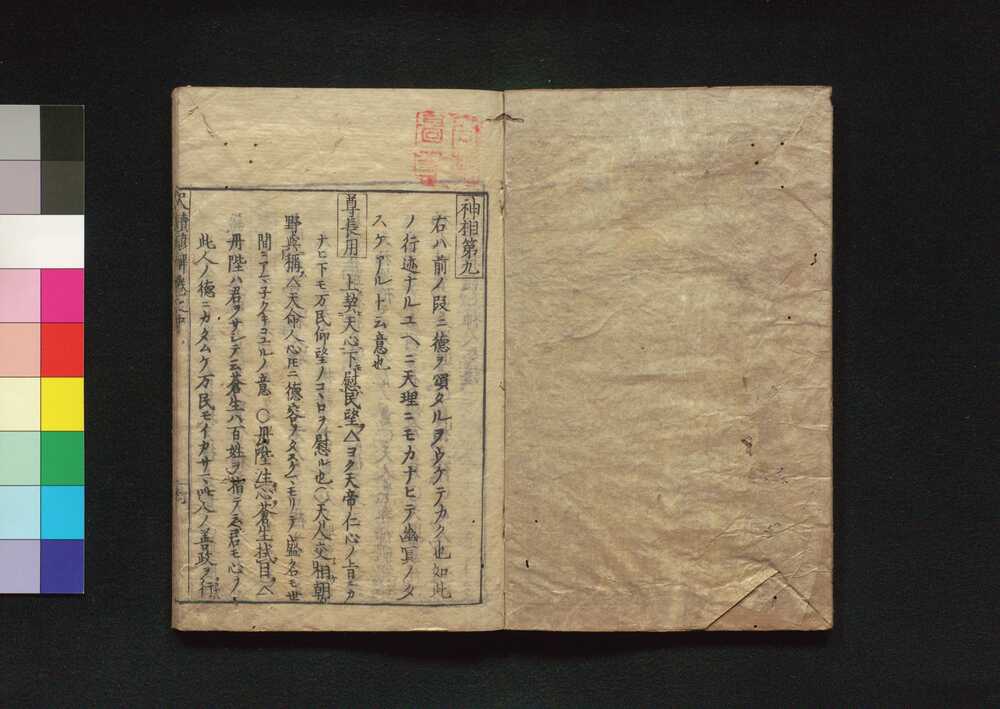 神相第九
右ハ前ノ段ニ德ヲ頌タルヲウケテカク也如此
ノ行迹ナルユヘニ天理ニモカナヒテ幽冥ノタ
スケアルト云意也
尊長用 上契天心下慰民望ヘヨク天帝ノ仁心ノ旨ニカ
ナヒ下モ万民仰望ノコヽロヲ慰ル也〇天人交相朝
野具稱ヘ天命人心モニ德容ヲタスケマモリテ盛名モ世
間ニアマ子クキコユルノ意〇丹陛注心蒼生拭目ヘ
丹陛ハ君ヲサシテ云蒼生ハ百姓ヲ指テ云君モ心ヲ
此人ノ德ニカタムケ万民モイカサマ此人ノ善政ヲ行
尺牘諺解卷之中